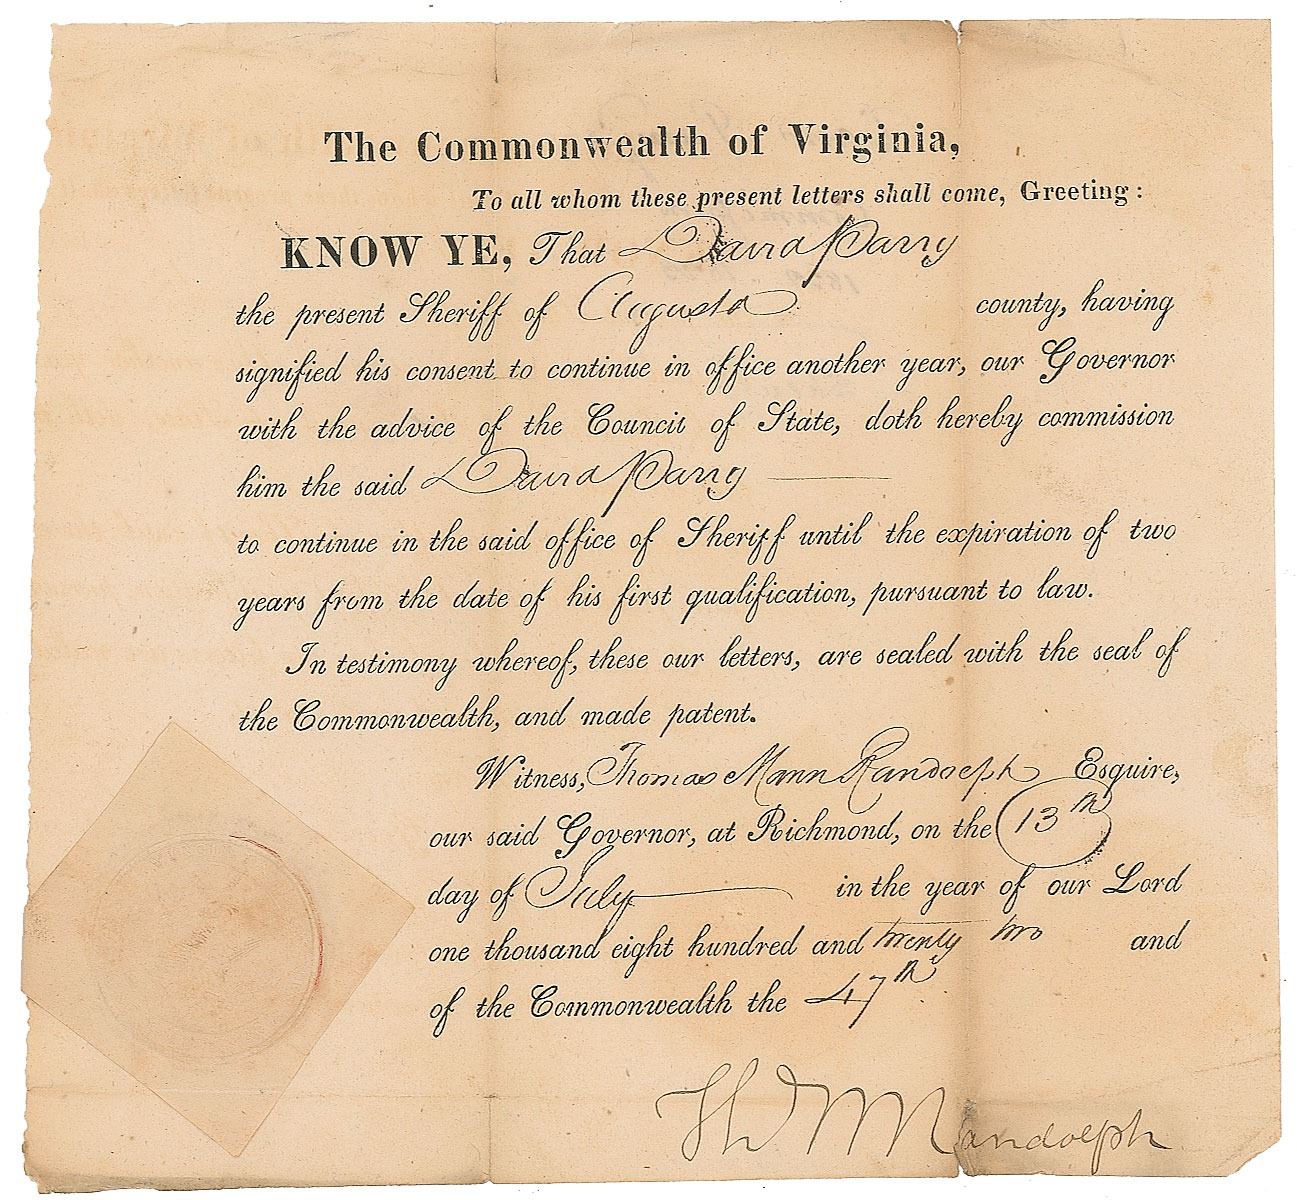 The Commonwealth of Virginia,
To all whom these present letters shall come, Greeting:
KNOW YE, That David Parry
the present Sheriff of Augusta county, having
signified his consent to continue in office another year, our Governor
with the advice of the Council of State, doth hereby commission
him the said David Parry
to continue in the said office of Sheriff until the expiration of two
years from the date of his first qualification, pursuant to law.
In testimony whereof, these our letters, are sealed with the seal of
the Commonwealth, and made patent.
Witness, Thomas Mann Randolph Esquire,
our said Governor, at Richmond, on the 13th
day of July in the year of our Lord
one thousand eight hundred and twenty two and
of the Commonwealth the 47th
Th M Randolph